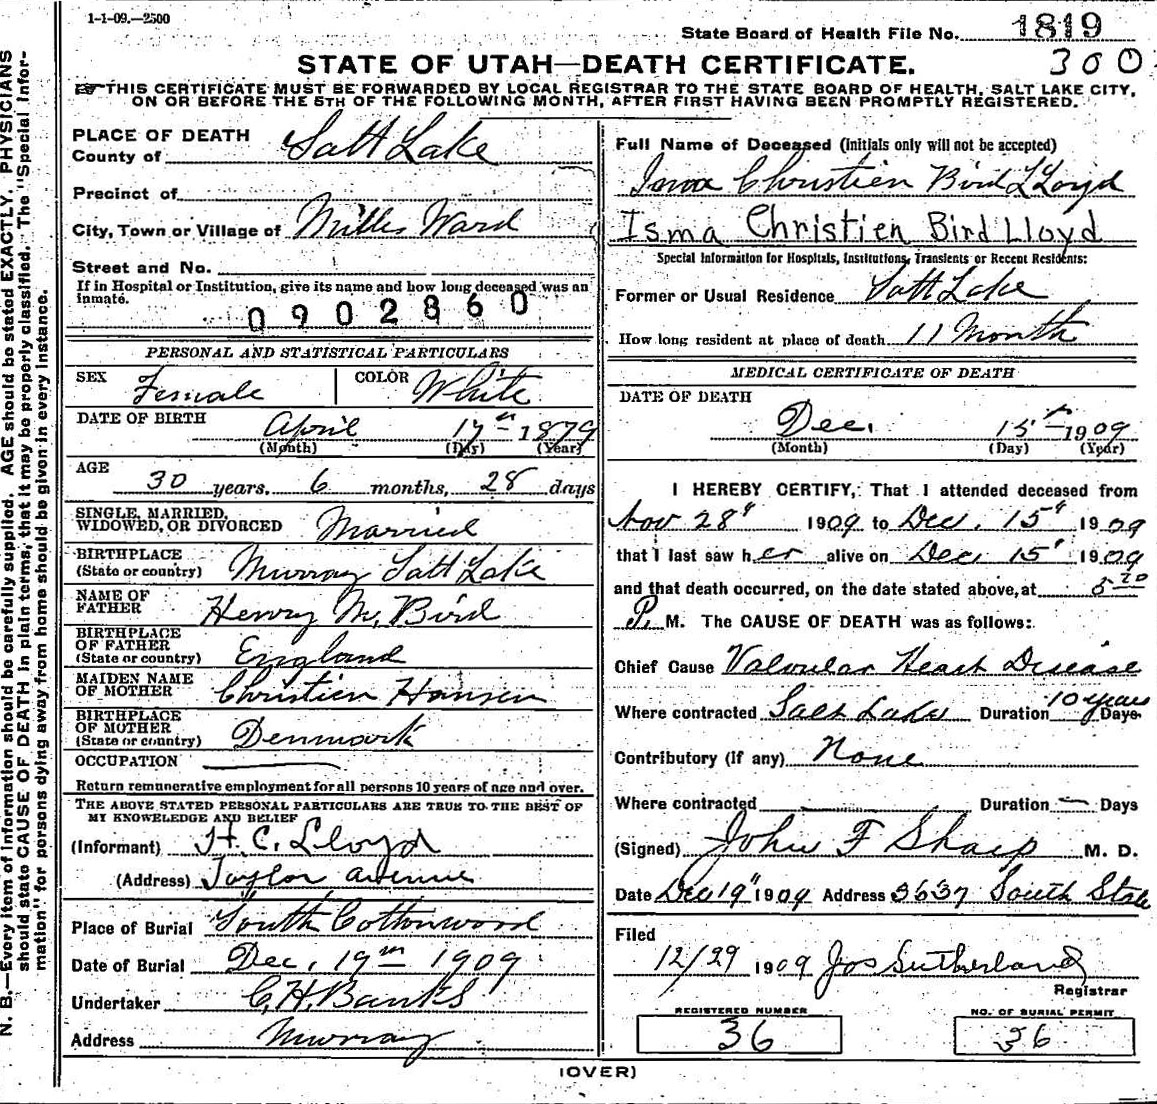 1-1-09.—2500
State Board of Health File No. 1819
300
STATE OF UTAH—DEATH CERTIFICATE.
THIS CERTIFICATE MUST BE FORWARDED BY LOCAL REGISTRAR TO THE STATE BOARD OF HEALTH, SALT LAKE CITY,
ON OR BEFORE THE 5TH OF THE FOLLOWING MONTH, AFTER FIRST HAVING BEEN PROMPTLY REGISTERED.
N. B.—Every item of information should be carefully supplied. AGE should be stated EXACTLY. PHYSICIANS
should state CAUSE OF DEATH in plain terms, that it may be properly classified. The "Special Infor-
mation" for persons dying away from home should be given in every instance.
PLACE OF DEATH
County of Salt Lake
Precinct of
City, Town or Village of Mills Ward
Street and No.
If in Hospital or Institution, give its name and how long deceased was an
inmate.
0902860
PERSONAL AND STATISTICAL PARTICULARS
SEX Female COLOR White
DATE OF BIRTH April 17th 1879
(Month) (Day) (Year)
AGE 30 years, 6 months, 28 days
SINGLE, MARRIED,
WIDOWED, OR DIVORCED Married
BIRTHPLACE
(State or country) Murray Salt Lake
NAME OF
FATHER Henry M. Bird
BIRTHPLACE
OF FATHER
(State or country) England
MAIDEN NAME
OF MOTHER Christien Hansen
BIRTHPLACE
OF MOTHER
(State or country) Denmark
OCCUPATION
Return remunerative employment for all persons 10 years of age and over.
THE ABOVE STATED PERSONAL PARTICULARS ARE TRUE TO THE BEST OF
MY KNOWLEDGE AND BELIEF
(Informant) H. C. Lloyd
(Address) Taylor avenue
Place of Burial South Cottonwood
Date of Burial Dec, 19th 1909
Undertaker C. H. Banks
Address Murray
Full Name of Deceased (Initials only will not be accepted)
Isma Christien Bird LLoyd
Isma Christien Bird Lloyd
Special Information for Hospitals, Institutions, Transients or Recent Residents:
Former or Usual Residence Salt Lake
How long resident at place of death 11 Month
MEDICAL CERTIFICATE OF DEATH
DATE OF DEATH
Dec. 15th 1909
(Month) (Day) (Year)
I HEREBY CERTIFY, That I attended deceased from
Nov 28" 1909 to Dec. 15" 1909
that I last saw her alive on Dec 15" 1909
and that death occurred, on the date stated above, at 5 20
P. M. The CAUSE OF DEATH was as follows:
Chief Cause Valvular Heart Disease
Where contracted Salt Lake Duration 10 years Days
Contributory (if any) None
Where contracted — Duration — Days
(Signed) John F Sharp M. D.
Date Dec 19" 1909 Address 3637 South State
Filed
12/29 1909 Jos Sutherland
Registrar
REGISTERED NUMBER
36
NO. OF BURIAL PERMIT
36
(OVER)